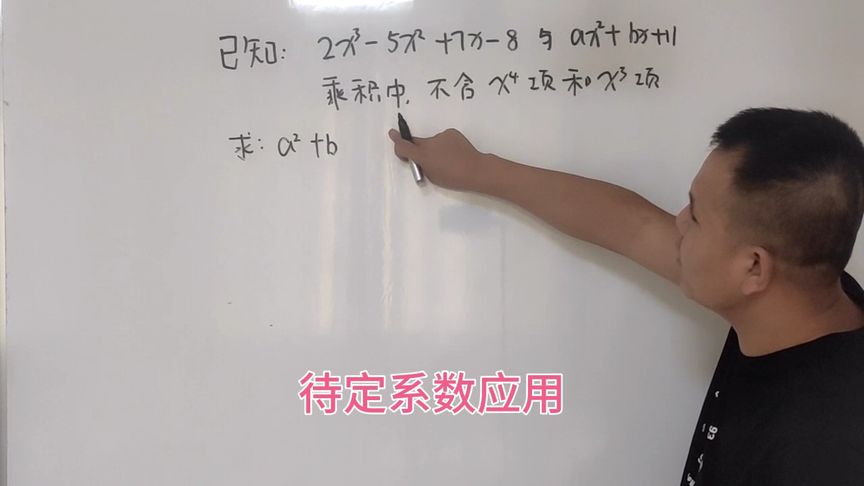 已知: 2x³-5x²+7x-8 与 ax²+bx+11
乘积中, 不含 x⁴项和x³项
求: a²+b
待定系数应用
93